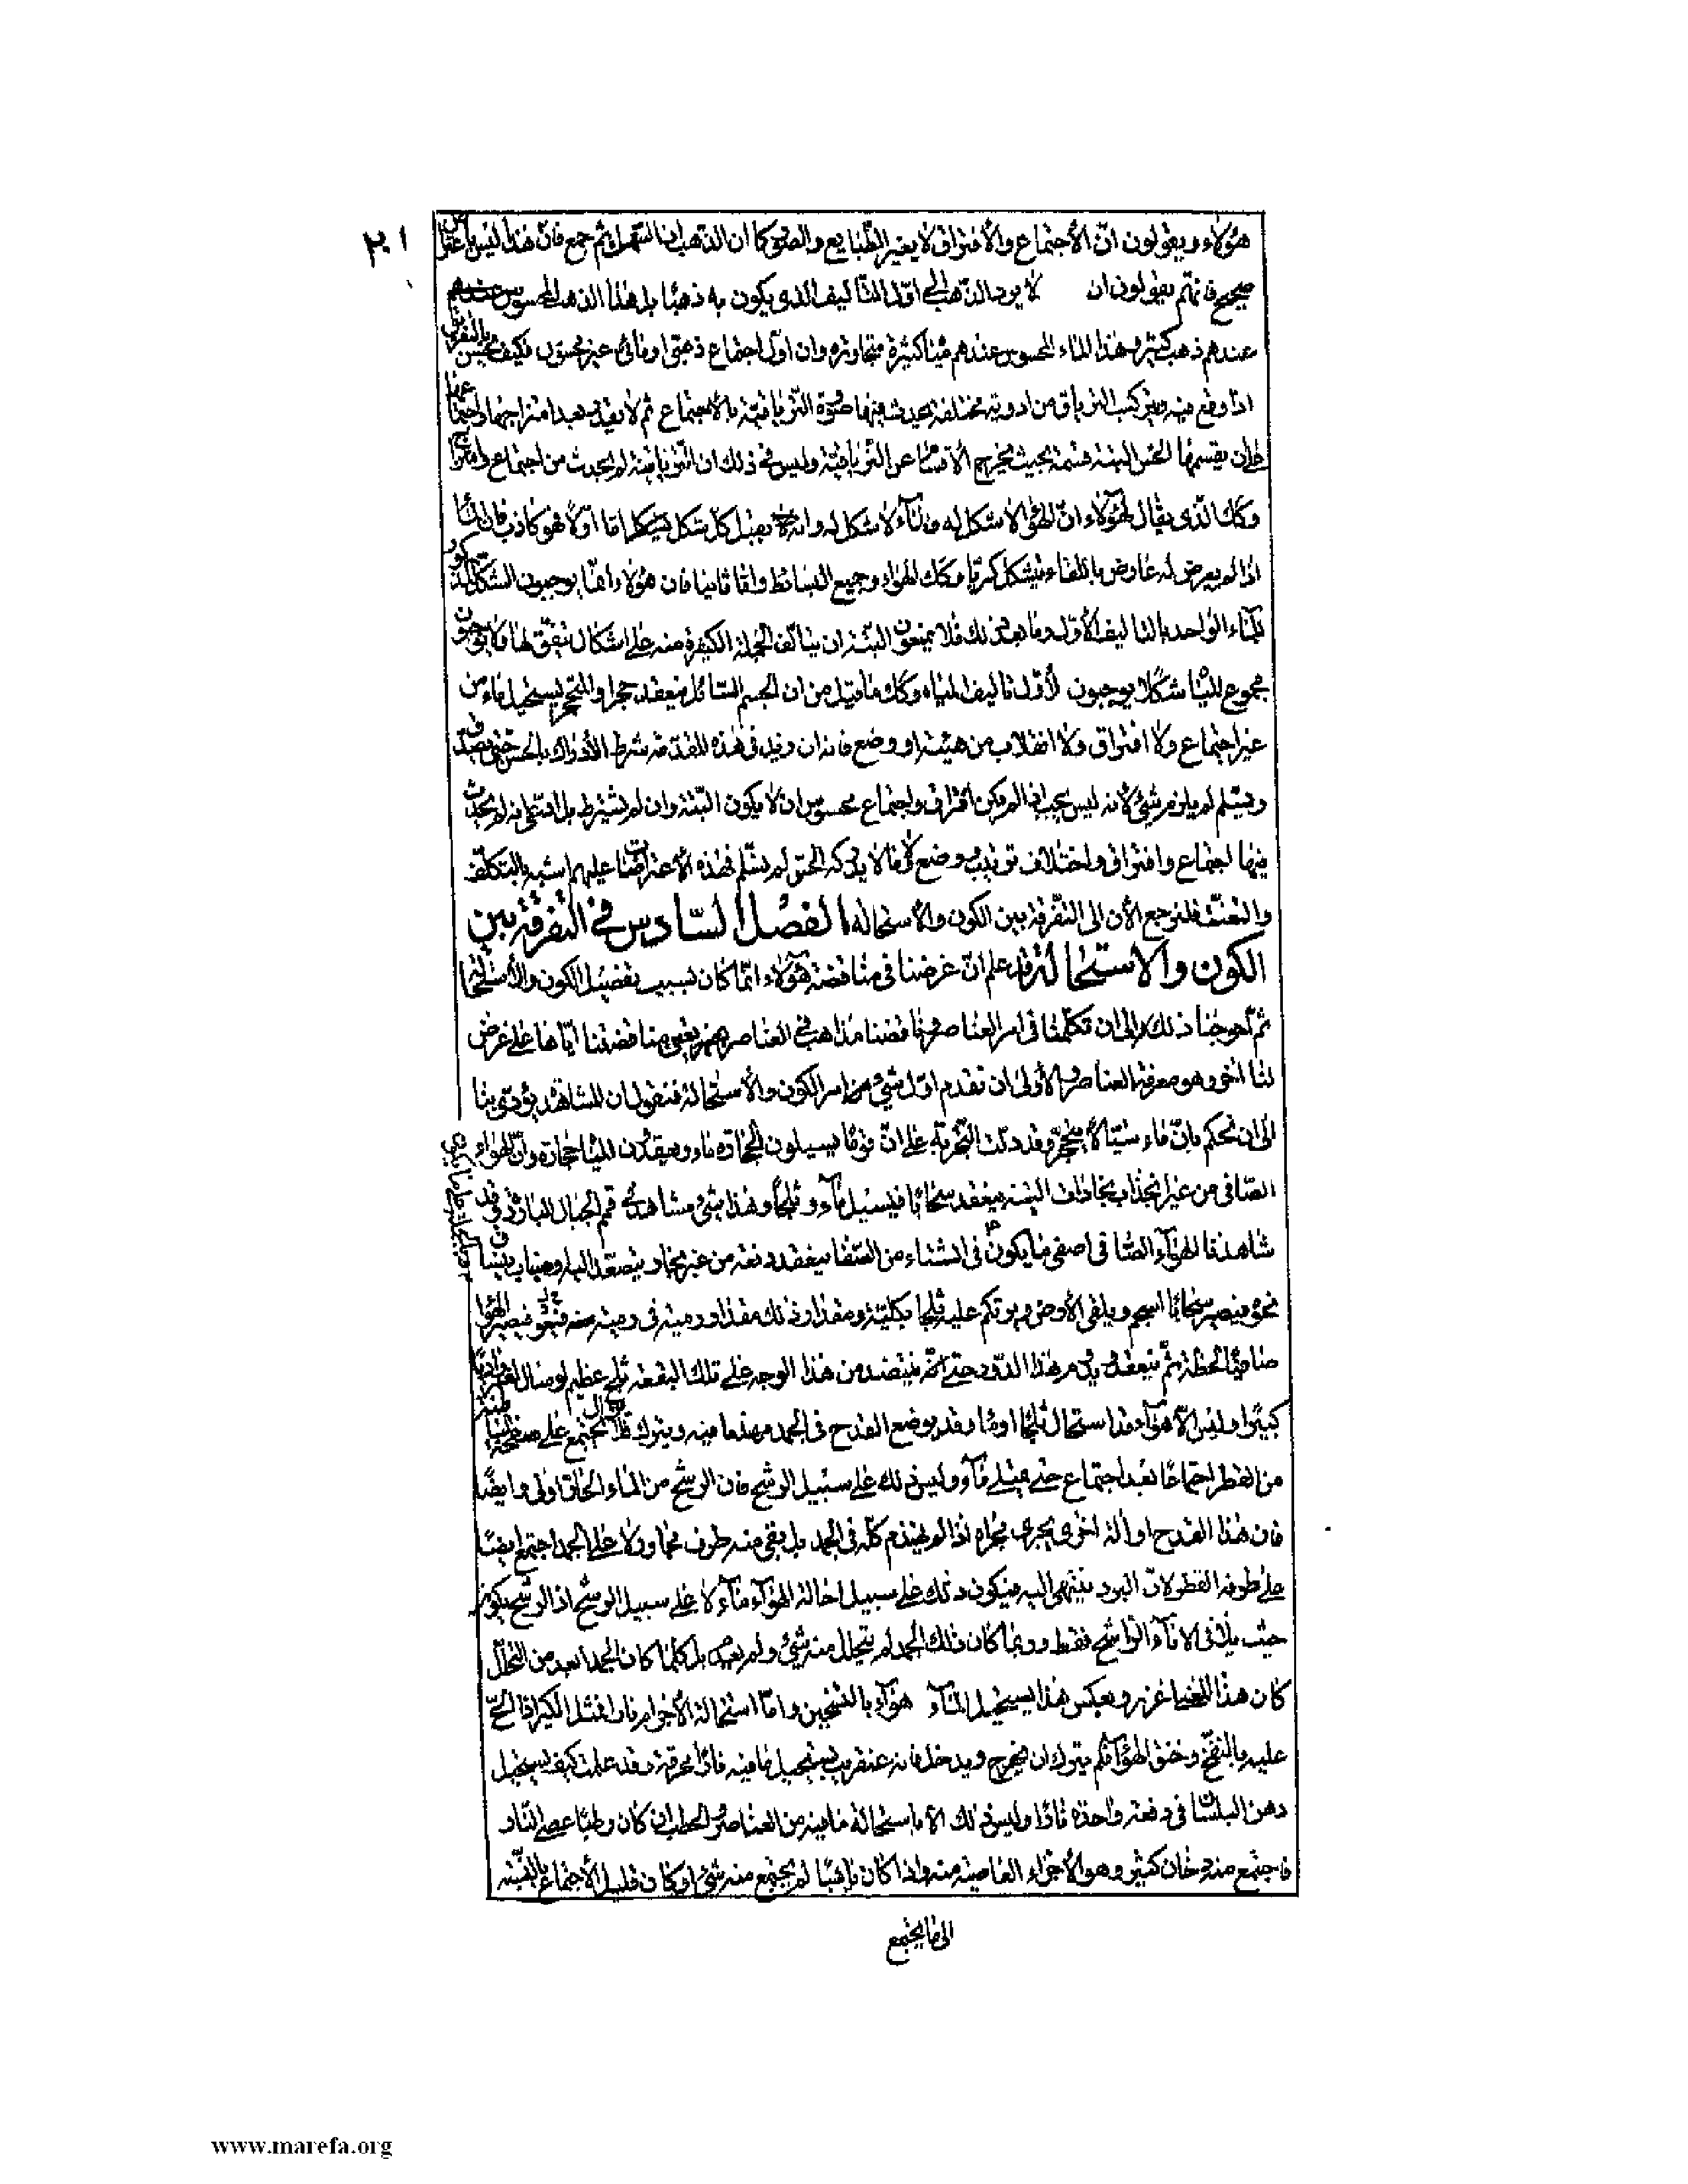 ٢٠١
هؤلاء ويقولون انّ الأجتماع والأفتراق لا يغير الطّبايع والصور كما ان الذهب اذا سحل ثم جمع فان هذا ليس باعتراض
صحيح فانهم يقولون ان لا يرد الذهب الى اوّل التأليف الذى يكون به ذهبا بل هذا الذهب المحسوس
عندهم ذهب كثير وهذا الماء المحسوس عندهم مياه كثيرة متجاورة وان اوّل اجتماع ذهبى او مائى غير محسوس فكيف يحس بالتفريق
اذا وقع فيه ويتركب الترياق من ادوية مختلفة يحدث فيها صورة الترياقية بالاجتماع ثم لا يقدر بعد امتزاجها واجتماعها
على ان يقسمها الحس البتة قسمة بحيث يخرج الأقسام عن الترياقية وليس فى ذلك ان الترياقية لم يحدث من اجتماع وافتراق
وكك الذى يقال لهؤلاء انّ الهواء لا شكل له والماء لا شكل له وانه يقبل كل شكل امّا اوّلا فهو كاذب فان الماء
اذا لم يعرض له عارض يتشكل كريا وكك الهواء وجميع البسائط وامّا ثانيا فان هؤلاء انما يوجبون الشكل المذكور
للماء الواحد بالتاليف الأوّل وما بعد ذلك فلا يمنعون البتة ان يتالف الجملة الكثيرة منه على اشكال يتفق لها ولا يوجبون
مجموع المياه شكلا يوجبون لأوّل تاليف المياه وكك ما قيل من ان الجسم السائل ينعقد حجرا والمتحجر يستحيل ماء من
غير اجتماع ولا افتراق ولا انقلاب من هيئة او وضع فانه ان زيد فى هذه المقدمة شرط الأدراك بالحس حتى يصدق
ويسلم لم يلزم شئ لأنه ليس يجب اذا لم يكن افتراق واجتماع محسوس ان لا يكون البتة وان لم يشترط بل ادعى انه لم يحدث
فيها اجتماع وافتراق واختلاف ترتيب ووضع ولا ما لا يدركه الحس لم يسلم فهذه الاعتراضات عليهم اشبه بالتكلف
والتعنت فلنرجع الأن الى التفرقة بين الكون والأستحالة الفصل السّادس فى التفرقة بين
الكون والاستحالة قد علم انّ غرضنا فى مناقضة هؤلاء انّما كان بسبب تفصيل الكون والأستحالة
ثم أحوجنا ذلك الى ان تكلمنا فى امر العناصر وناقضنا مذاهب فى العناصر مناقضتنا ايّاها على غرض
لنا اخر وهو معرفة العناصر والأولى ان نقدم اوّل شئ من امر الكون والأستحالة فنقول ان المشاهدة يؤدى بنا
الى ان نحكم بانّ ماء سيّالا يتحجر وقد دلت التجربة على انّ قوما يسيلون الحجارة ماء ويعقدون المياه حجارة وانّ الهواء
الصافى من غير انجذاب بخارات اليه ينعقد سحابا فيسيل ماء وثلجا وهذا شئ مشاهد فى قمم الجبال الباردة وقد
شاهدنا الهواء الصافى اصفى ما يكون فى الشتاء من الصفا ينعقد دفعة من غير بخار يتصعد اليه وضباب ينساق
نحوه فيصير سحابا اسحم ويلقى الأرض ويرتكم عليه ثلجا بكليته ومقدار ذلك مقدار رمية فى رمية فيصير الهواء
صافيا لحظة ثم ينعقد ويدوم هذا الدّور حتى انه يتنضد من هذا الوجه على تلك البقعة ثلج عظيم لو سال لغمر واديا
كبيرا وليس الّا هواء قد استحال ثلجا او ماء وقد يوضع القدح فى الجمد مهندما فيه ويترك فلا يزال يجتمع على صفحته الباطنة
من القطر اجتماعا بعد اجتماع حتى يمتلى ماء وليس ذلك على سبيل الرشح فان الرشح من الماء الحارّ اولى وايضا
فان هذا القدح او آلة اخرى يجرى مجراه اذا لم يهندم كلّه فى الجمد بل بقى منه طرف مجاوز لا على الجمد اجتمع ايضا
على طرفه القطر لانّ البرد ينتهى اليه فيكون ذلك على سبيل احالة الهواء ماء لا على سبيل الرشح اذ الرشح يكون
حيث يلاقى الاناء الراشح فقط وربما كان ذلك الجمد لم يتحلل منه شئ ولم يعرق بل كلما كان الجمد ابعد من التحلل
كان هذا المعنى اغزر وبعكس هذا يستحيل الماء هواء بالتسخين وامّا استحالة الأجرام نارا فمثل الكير اذا الحّ
عليه بالنفخ وخنق الهواء فلم يترك ان يخرج ويدخل فانه عن قريب يستحيل ما فيه نارا محرقة وقد علمت كيف يستحيل
دهن البلسان فى دفعة واحدة نارا وليس ذلك الّا باستحالة ما فيه من العناصر والحطب اذا كان رطبا عصى النار
فاجتمع منه دخان كثير وهو الأجزاء العاصية منه واذا كان يابسا لم يجتمع منه شئ او كان قليل الأجتماع بالنسبة
الى ما يجتمع
www.marefa.org